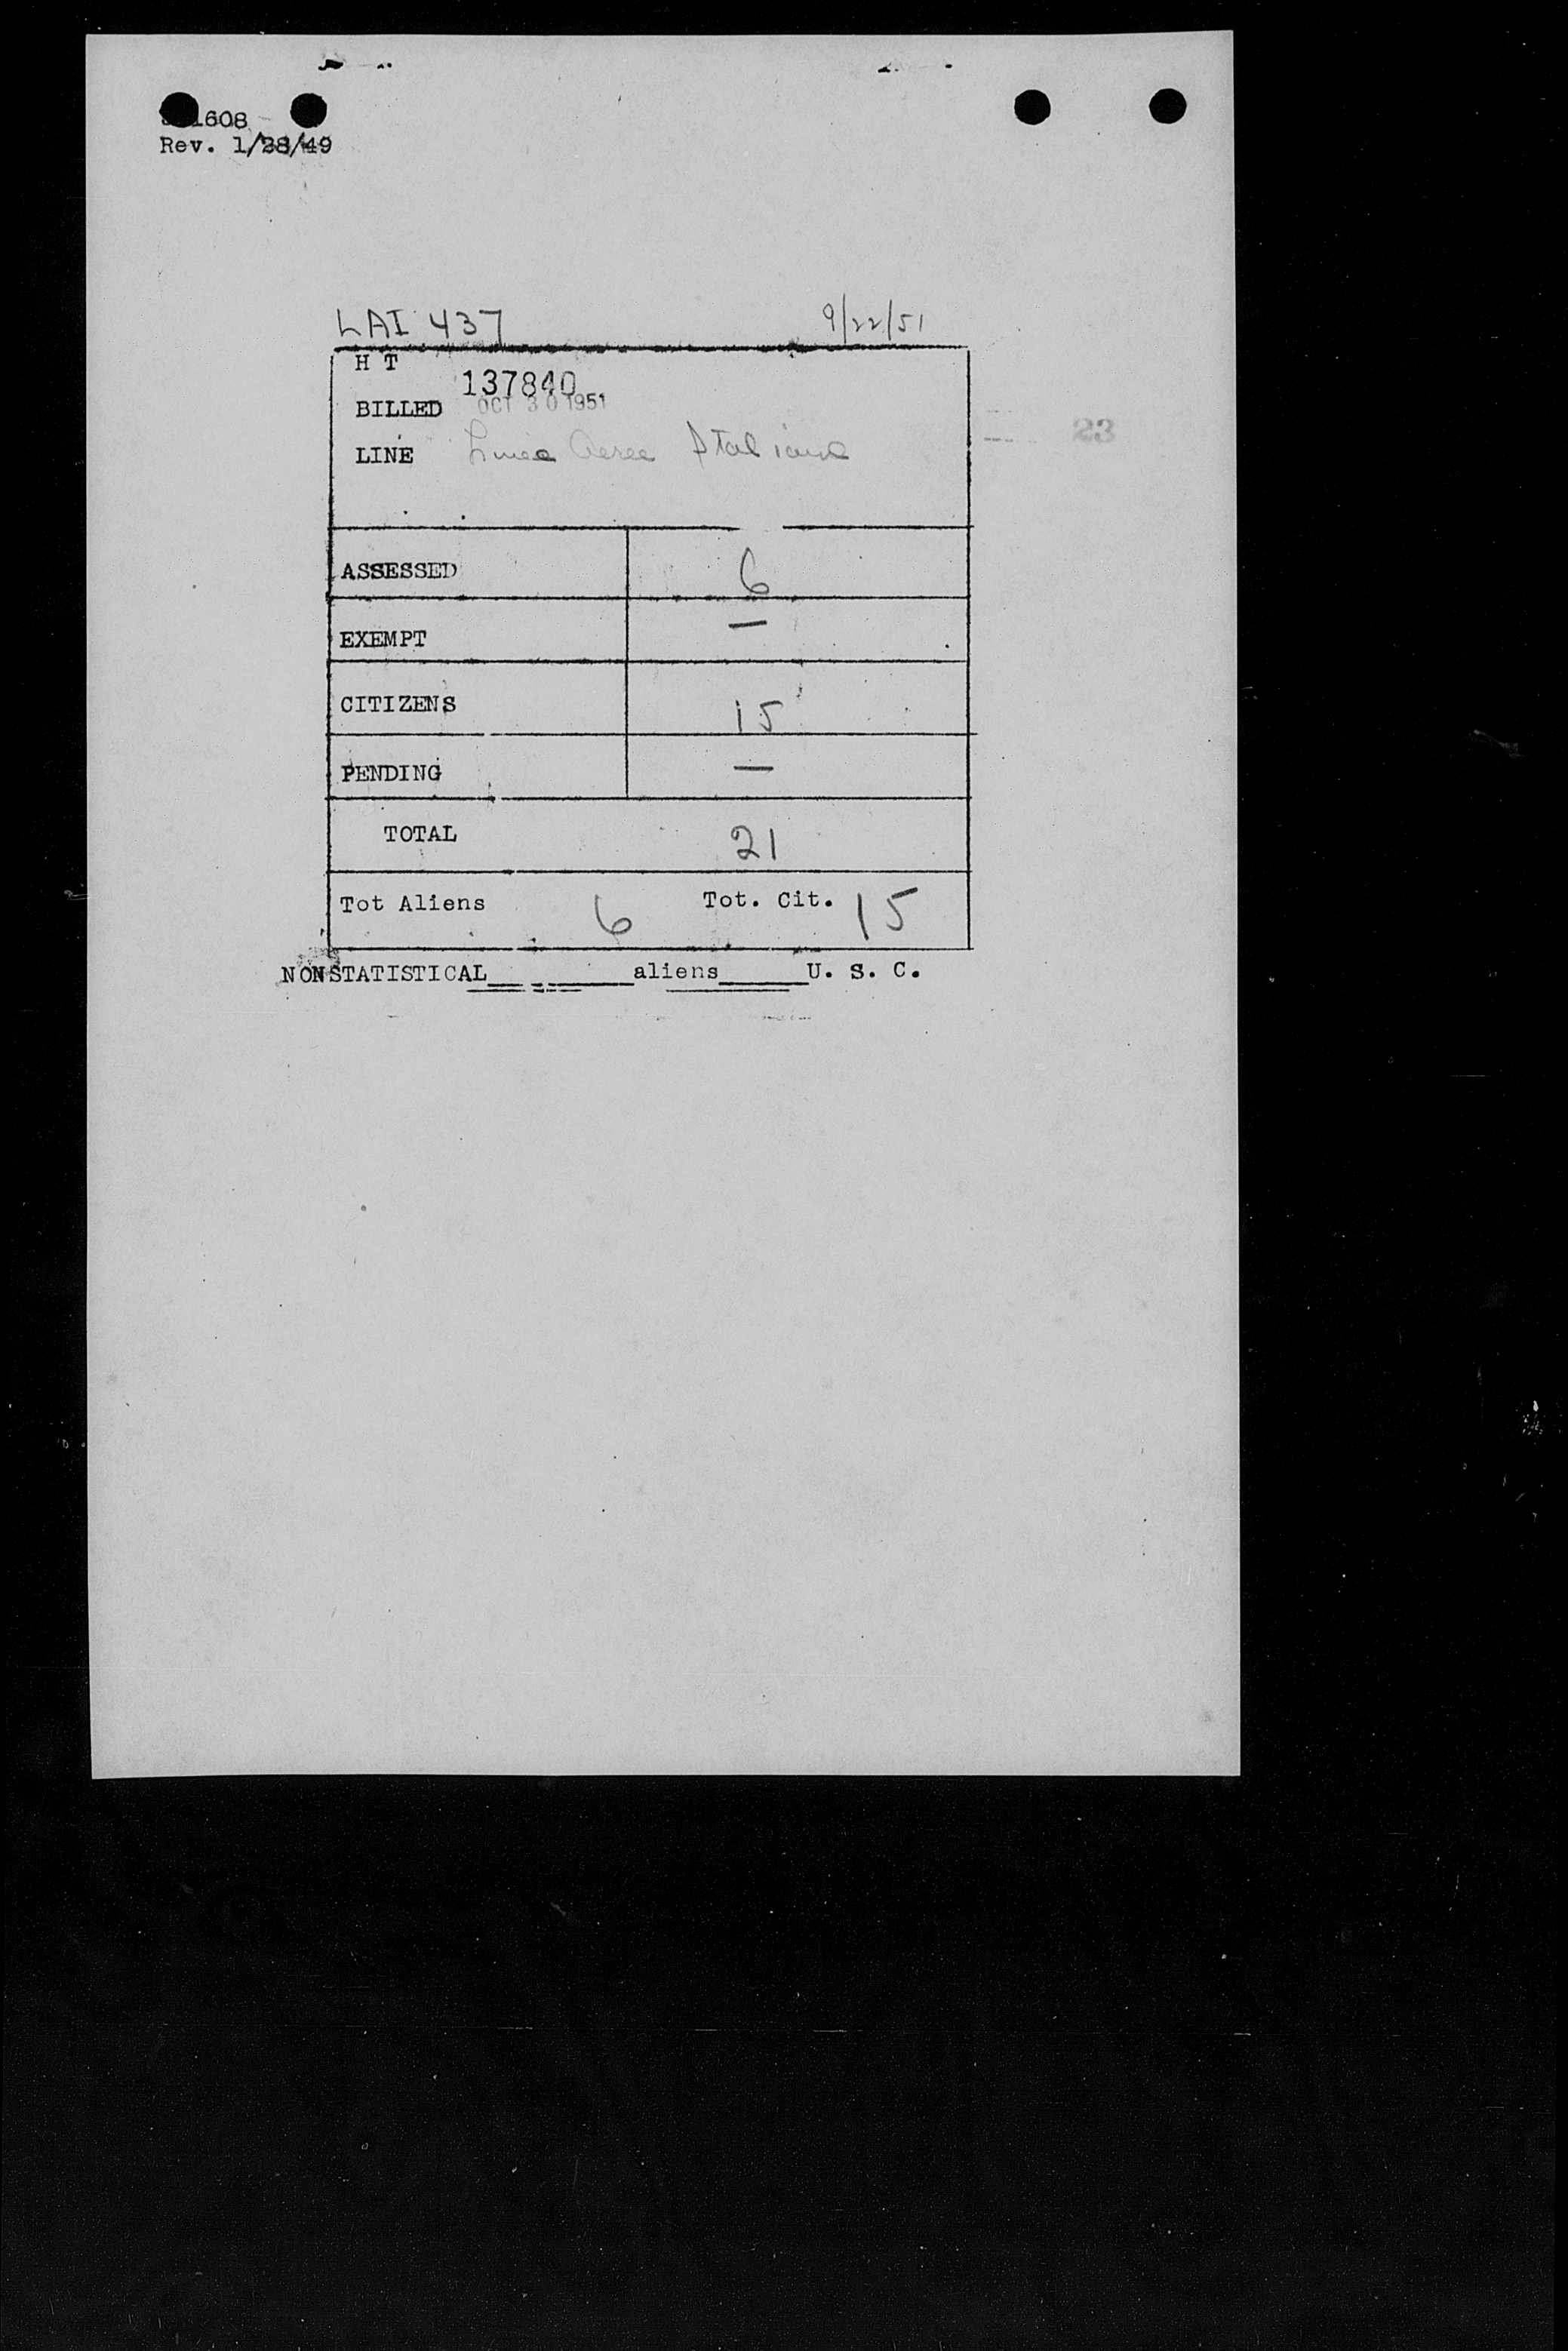 1608
Rev. 1/28/49
LAI 437 9/22/51
H T
137840
BILLED OCT 30 1951
LINE Linea Aeree Italiane
23
ASSESSED 6
EXEMPT —
CITIZENS 15
PENDING —
TOTAL 21
Tot Aliens 6 Tot. Cit. 15
NONSTATISTICAL_______aliens_____U. S. C.